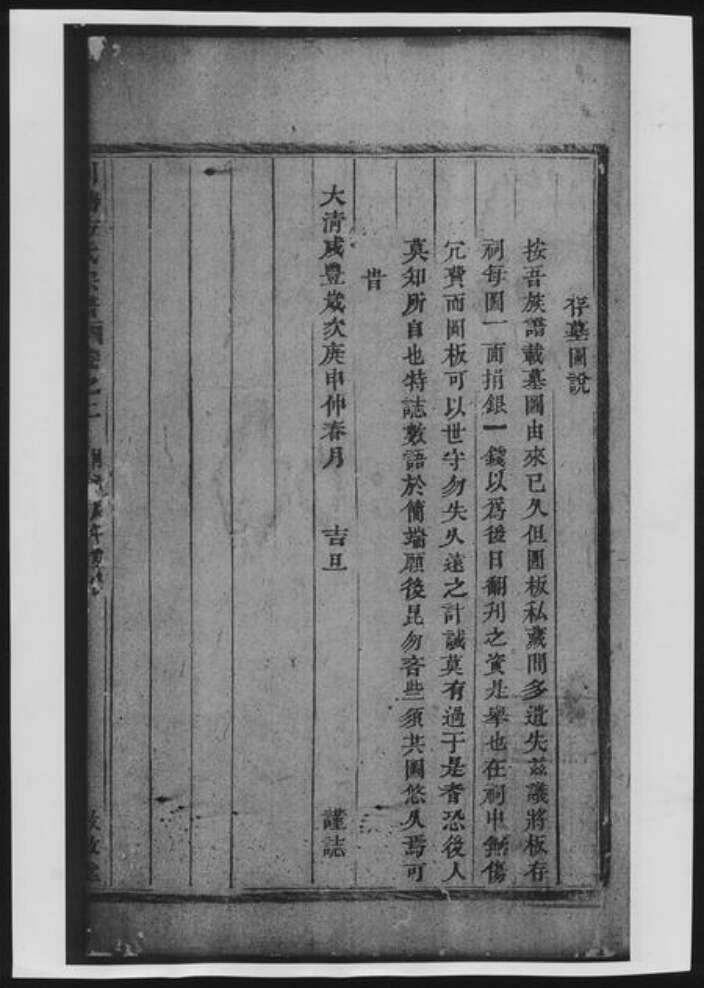 存墓圖說
按吾族譜載墓圖由來已久但圖板私藏間多遺失茲議將板存
祠每圖一面捐銀一錢以爲後日翻刋之資是舉也在祠中無傷
冗費而圖板可以世守勿失久遠之計誠莫有過于是者恐後人
莫知所自也特誌數語於簡端願後昆勿吝些須共圖悠久焉可
昔
大清咸豐歲次庚申仲春月 吉旦 謹誌